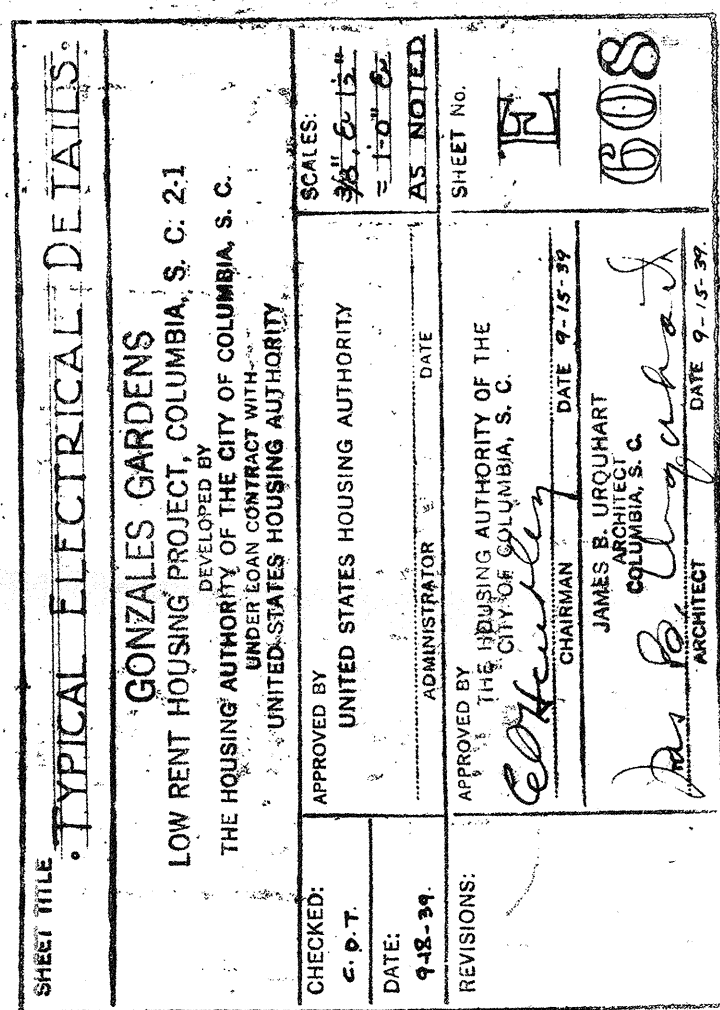 SHEET TITLE
. TYPICAL ELECTRICAL DETAILS.
GONZALES GARDENS
LOW RENT HOUSING PROJECT, COLUMBIA, S. C. 2-1
DEVELOPED BY
THE HOUSING AUTHORITY OF THE CITY OF COLUMBIA, S. C.
UNDER LOAN CONTRACT WITH
UNITED STATES HOUSING AUTHORITY
CHECKED:
C. D. T.
DATE:
9-18-39.
APPROVED BY
UNITED STATES HOUSING AUTHORITY
ADMINISTRATOR DATE
SCALES:
3/8", & 1½"
= 1'-0" &
AS NOTED
REVISIONS:
APPROVED BY
THE HOUSING AUTHORITY OF THE
CITY OF COLUMBIA, S. C.
CHAIRMAN DATE 9-15-39
JAMES B. URQUHART
ARCHITECT
COLUMBIA, S. C.
Jas B. Urquhart
ARCHITECT DATE 9-15-39.
SHEET No.
E
608